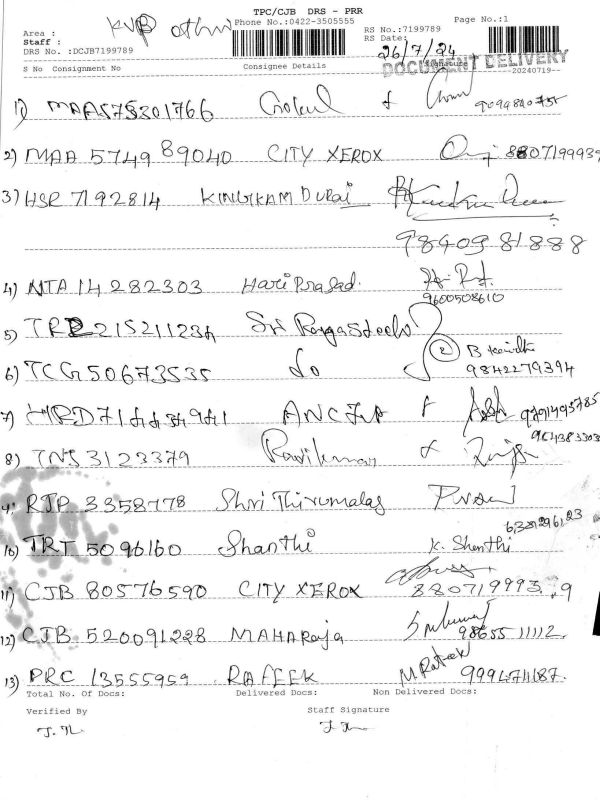 TPC/CJB DRS - PRR
KVB
Phone No.:0422-3505555
Page No.:1
Area :
RS No.:7199789
Staff :
RS Date:
26/7/24
DRS No. :DCJB7199789
DOCUMENT DELIVERY
S No Consignment No Consignee Details Signature --20240719--
1) MAA575301766 Gokul & 9094840755
2) MAA 574989040 CITY XEROX 8807199939
3) HSR 7192814 KINGIKAM DURAI
9840981888
4) NTA 14282303 Hari Prasad.
9600508610
5) TRP 215211234 Sri Rangasteels
2
6) TCG 50673535 do 9842279394
7) ANCFIA
8) TNS 3123379 Ravikumar & 964383303
9) RJP 3358778 Shri Thirumalas
10) TRT 5096160 Shanthi K. Shanthi
11) CJB 80576590 CITY XEROX 880719993.9
12) CJB 520091228 MAHARaja 9865511112.
13) PRC 13555959 RAFEEK M Rafeek
Total No. Of Docs: Delivered Docs: Non Delivered Docs:
Verified By Staff Signature